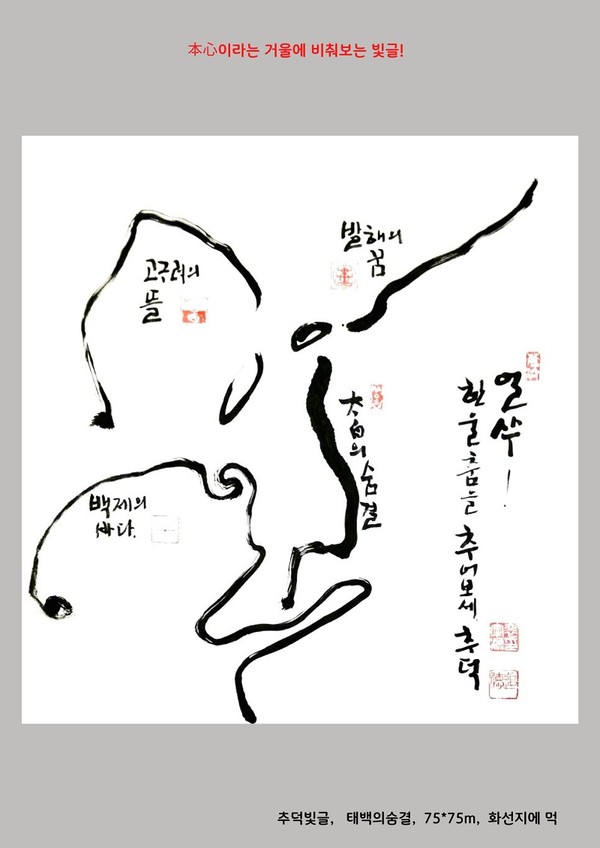 本心이라는 거울에 비춰보는 빛글!
발해의
꿈
고구려의
뜰
얼쑤!
한울춤을 추어보세, 추덕
太白의 숨결
백제의
싸다.
추덕빛글, 태백의숨결, 75*75m, 화선지에 먹